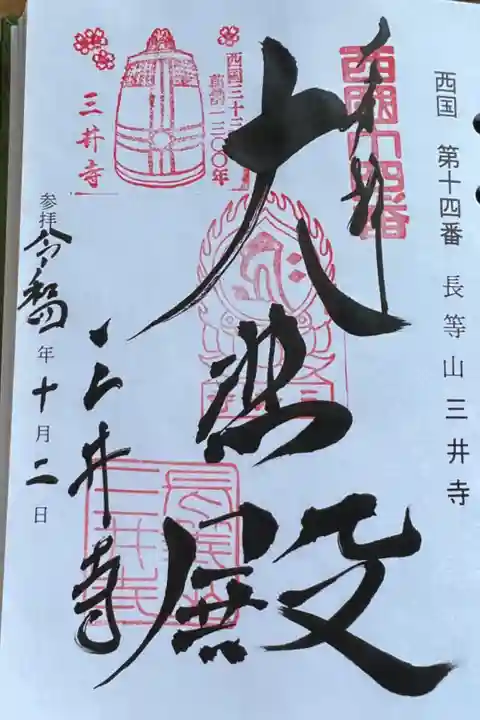 西国 第十四番 長等山 三井寺
奉拝
西国十四番
大悲殿
三井寺
西国三十三所
草創一三〇〇年
三井寺
参拝 令和四年十月二日